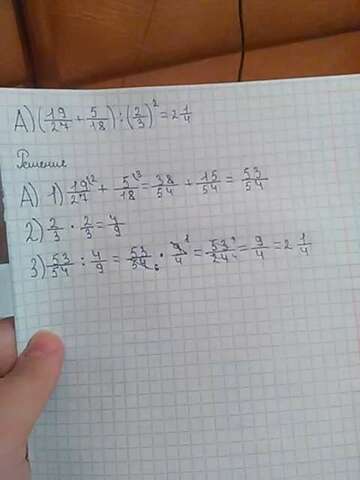 А) (19/27 + 5/18) : (2/3)² = 2 1/4
Решение
А) 1) 19/27 ^2 + 5/18 ^3 = 38/54 + 15/54 = 53/54
2) 2/3 · 2/3 = 4/9
3) 53/54 : 4/9 = 53/54 6 · 9/4 ^1 = 53/24 = 9/4 = 2 1/4